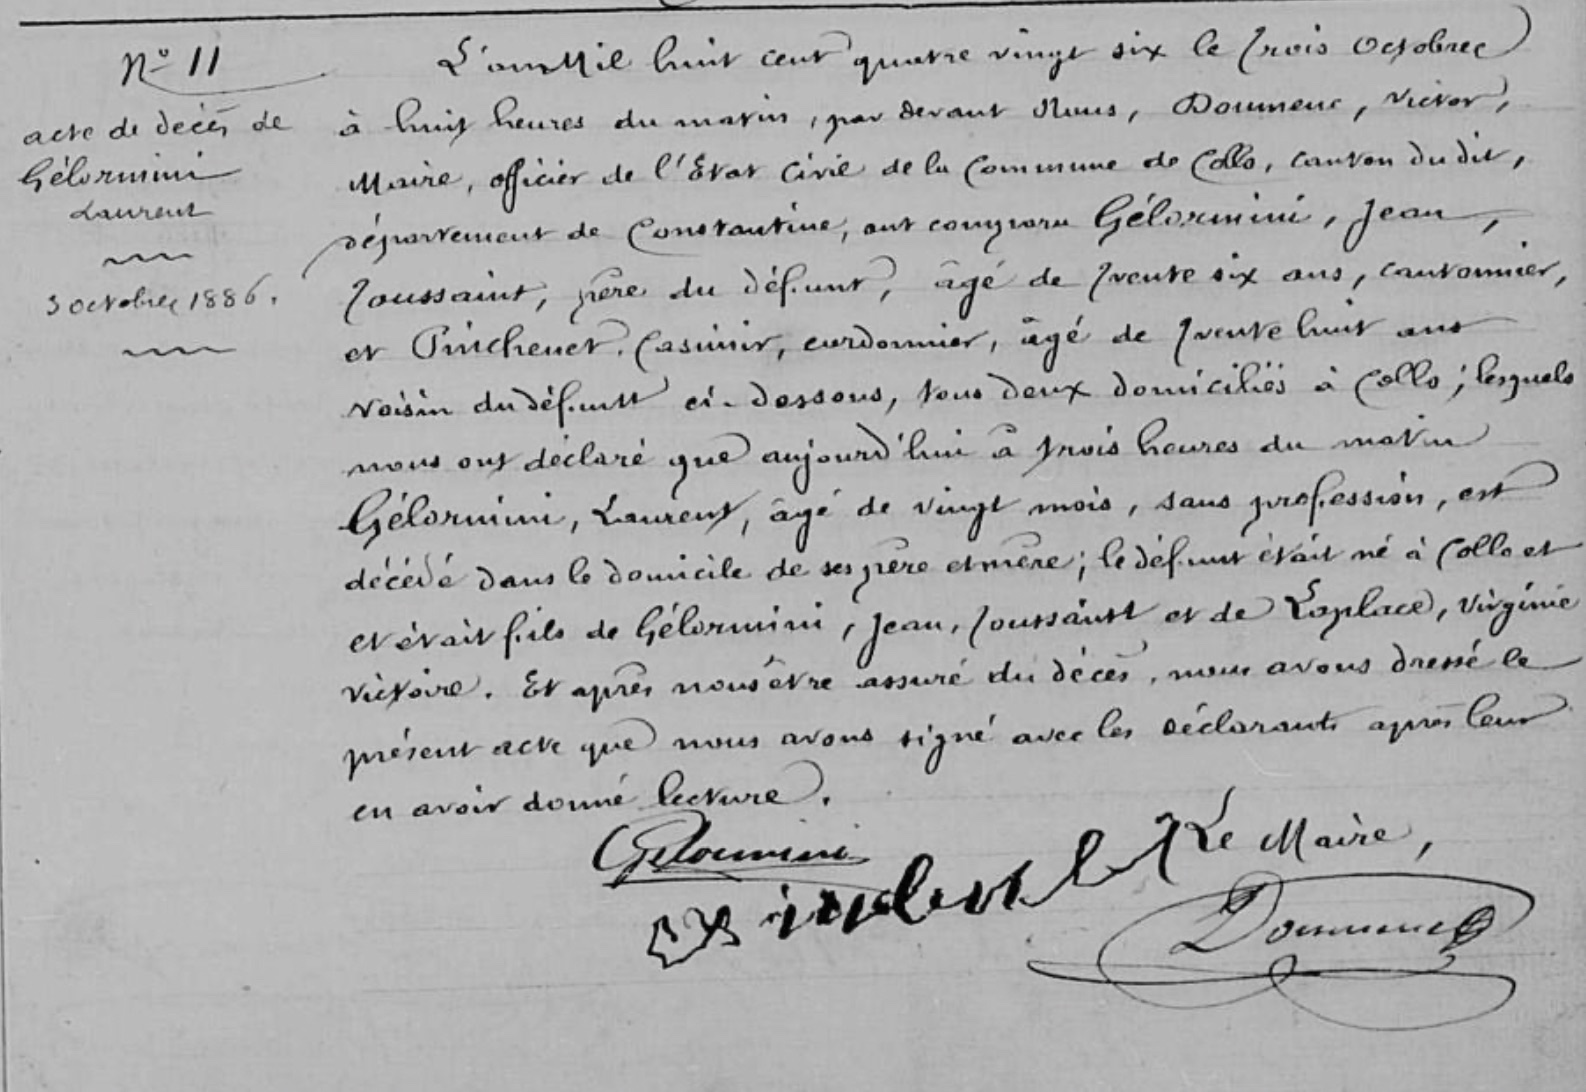 N° 11
acte de décès de
Gélormini
Laurent
3 octobre 1886.
L'an Mil huit cent quatre vingt six le trois Octobre
à huit heures du matin, par devant Nous, Doumenc, Victor,
Maire, officier de l'Etat Civil de la Commune de Collo, canton du dit,
département de Constantine, ont comparu Gélormini, Jean,
Toussaint, père du défunt, âgé de trente six ans, cantonnier,
et Pinchenet, Casimir, cordonnier, âgé de trente huit ans
voisin du défunt ci-dessous, tous deux domiciliés à Collo; lesquels
nous ont déclaré que aujourd'hui à trois heures du matin
Gélormini, Laurent, âgé de vingt mois, sans profession, est
décédé dans le domicile de ses père et mère; le défunt était né à Collo et
et était fils de Gélormini, Jean, Toussaint et de Laplace, Virginie
victoire. Et après nous être assuré du décès, nous avons dressé le
présent acte que nous avons signé avec les déclarants après leur
en avoir donné lecture.
Gelormini
Le Maire,
Doumenc